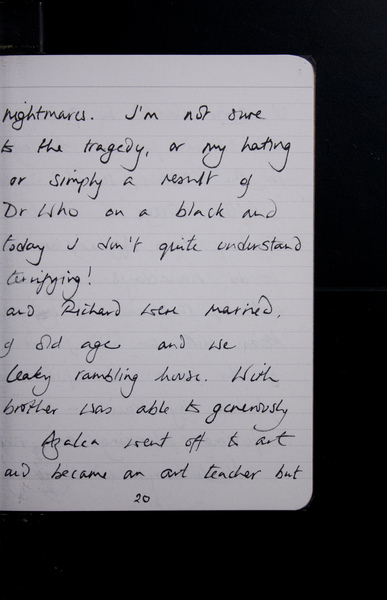 nightmares. I'm not sure
to the tragedy, or my hating
or simply a result of
Dr Who on a black and
today I don't quite understand
terrifying!
and Richard were married,
of old age and we
leaky rambling house. With
brother was able to generously
Azalea went off to art
and became an art teacher but
20